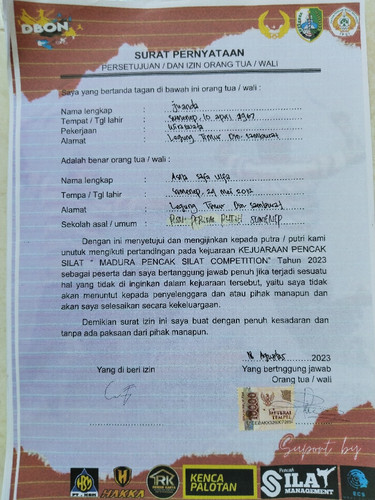 DBON
SURAT PERNYATAAN
PERSETUJUAN / DAN IZIN ORANG TUA / WALI
Saya yang bertanda tagan di bawah ini orang tua / wali :
Nama lengkap : juanda
Tempat / Tgl lahir : sumenep, 10 april 1967
Pekerjaan : wiraswasta
Alamat : Legung Timur
Adalah benar orang tua / wali :
Nama lengkap :
Tempa / Tgl lahir : Sumenep, 29 mei 2012
Alamat : Legung Timur
Sekolah asal / umum : SUMENEP
Dengan ini menyetujui dan mengijinkan kepada putra / putri kami
unutuk mengikuti pertandingan pada kejuaraan KEJUARAAN PENCAK
SILAT " MADURA PENCAK SILAT COMPETITION" Tahun 2023
sebagai peserta dan saya bertanggung jawab penuh jika terjadi sesuatu
hal yang tidak di inginkan dalam kejuaraan tersebut, yaitu saya tidak
akan menuntut kepada penyelenggara dan atau pihak manapun dan
akan saya selesaikan secara kekeluargaan.
Demikian surat izin ini saya buat dengan penuh kesadaran dan
tanpa ada paksaan dari pihak manapun.
Agustus 2023
Yang di beri izin
Yang bertnggung jawab
Orang tua / wali
10000
METERAI
TEMPEL
Suport by
HRM
HAKKA
TRK
KENCA
PALOTAN
Pencak
SILAT
MANAGEMENT